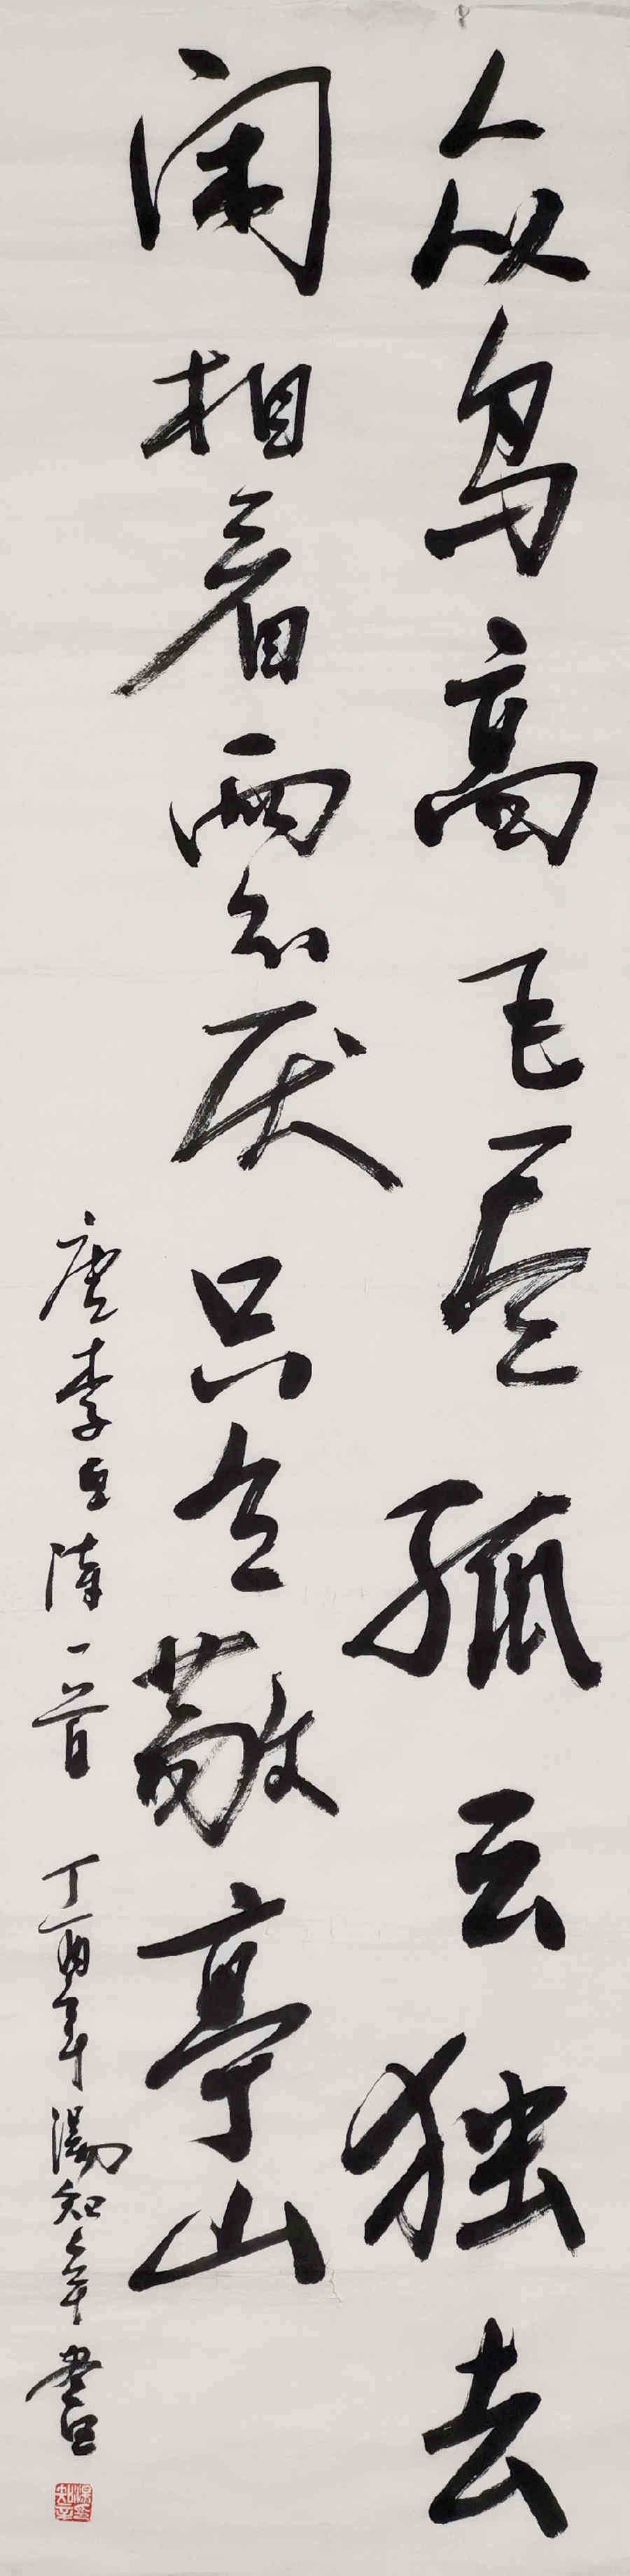 众鸟高飞尽孤云独去
闲相看两不厌只有敬亭山
唐李白诗一首 丁酉年汤知辛书